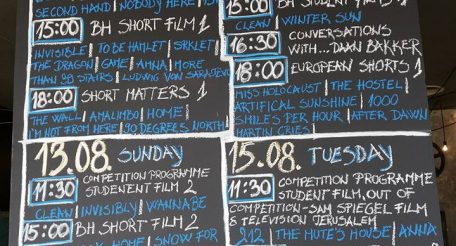 SECOND HAND | NOBODY HERE IS
15:00 BH SHORT FILM 1
INVISIBLE | TO BE HAMLET | SRKLET |
THE DRAGON | GAME | AMNA | MORE
THAN 98 STAIRS | LUDWIG VON SARAJEVO
18:00 SHORT MATTERS 1
THE WALL | AMALIMBO | HOME |
I'M NOT FROM HERE | 90 DEGREES NORTH
13.08. SUNDAY
11:30 COMPETITION PROGRAMME
STUDENENT FILM 2
CLEAN | INVISIBLY | WANNABE
15:00 BH SHORT FILM 2
HOME | SNOW FOR
15:00 BH STUDENT FILM 1
CLEAN | WINTER SUN
16:30 CONVERSATIONS
WITH... DAAN BAKKER
18:00 EUROPEAN SHORTS 1
MISS HOLOCAUST | THE HOSTEL |
ARTIFICAL SUNSHINE | 1000
SMILES PER HOUR | AFTER DAWN
MARTIN CRIES
15.08. TUESDAY
11:30 COMPETITION PROGRAMME
STUDENT FILM, OUT OF
COMPETITION - SAM SPIEGEL FILM
& TELEVISION JERUSALEM
212 | THE MUTE'S HOUSE | ANNA